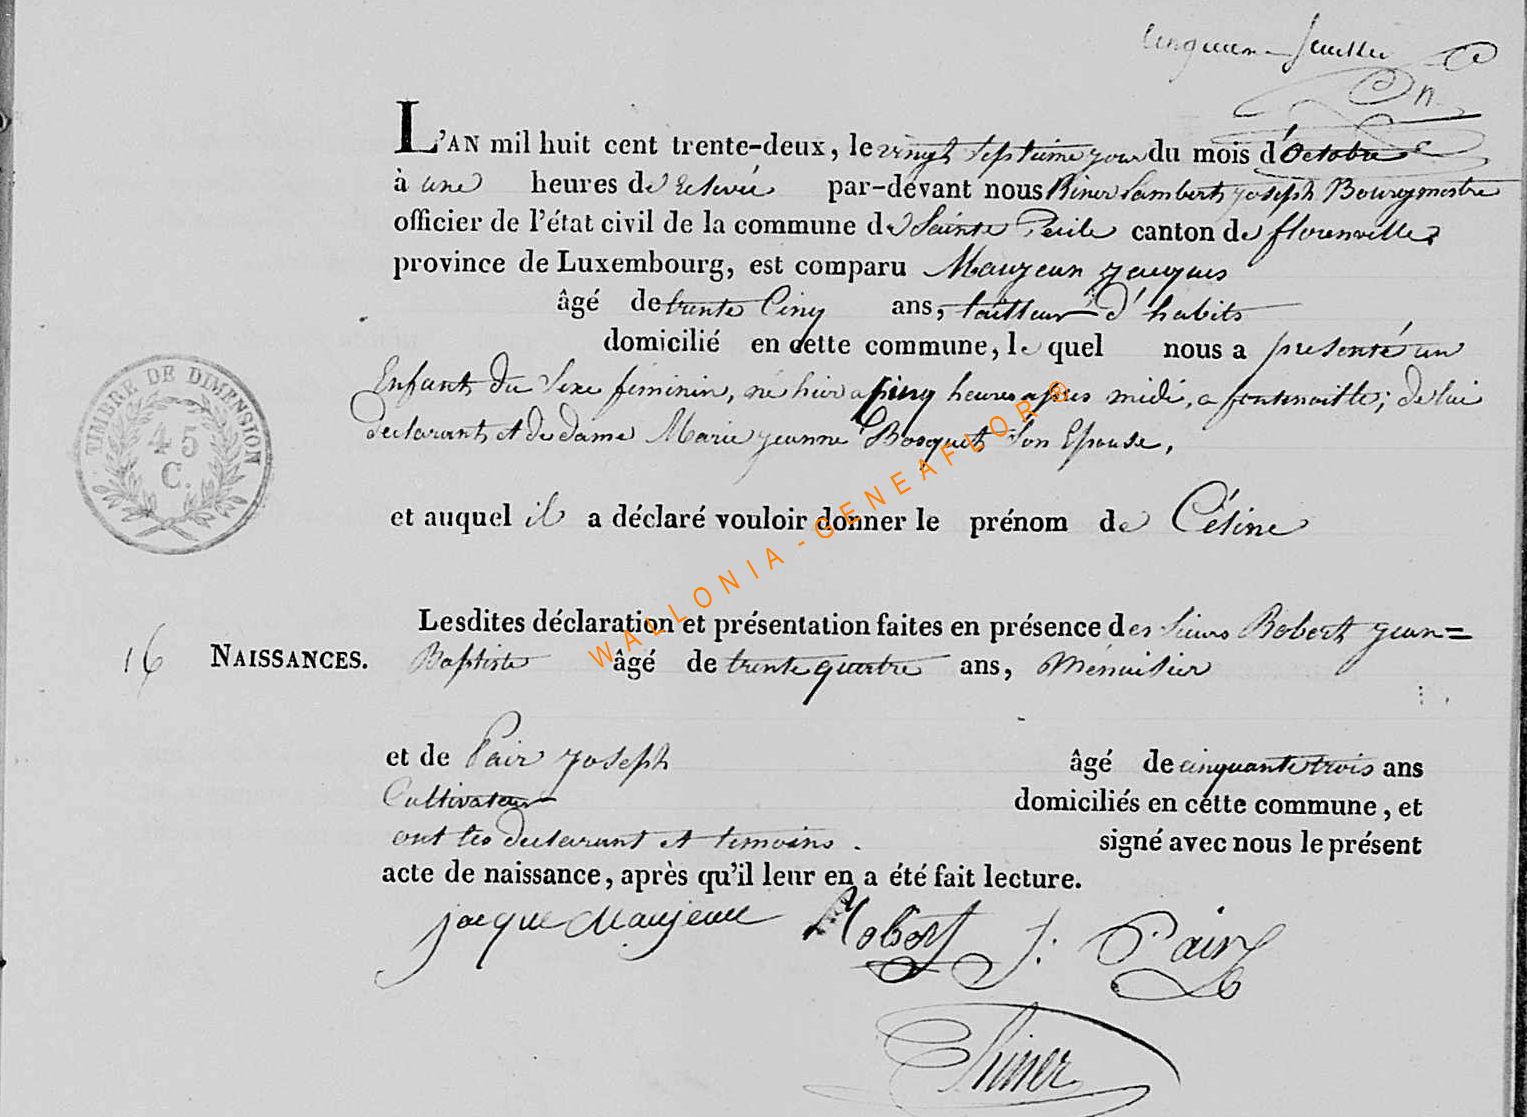 feuillet
L'AN mil huit cent trente-deux, le vingt septieme jour du mois d'Octobre
à une heures de relevée par-devant nous Riner Lambert joseph Bourgmestre
officier de l'état civil de la commune de Sainte Cécile canton de florenville
province de Luxembourg, est comparu Maujean jacques
âgé de trente Cinq ans, tailleur d'habits
domicilié en cette commune, le quel nous a presenté un
Enfant du Sexe féminin, né hier a Cinq heures apres midi, a fontenoille; de lui
declarant et de dame Marie jeanne Bosquet Son Epouse,
et auquel il a déclaré vouloir donner le prénom de Céline
Lesdites déclaration et présentation faites en présence des sieurs Robert jean=
16 NAISSANCES. Baptiste âgé de trente quatre ans, Menuisier
et de Pair joseph âgé de cinquante trois ans
Cultivateur domiciliés en cette commune, et
ont les declarant et temoins. signé avec nous le présent
acte de naissance, après qu'il leur en a été fait lecture.
jacque Maujean Robert J: Pair
Riner
TIMBRE DE DIMENSION
45
C.
WALLONIA - GENEAFLOR®